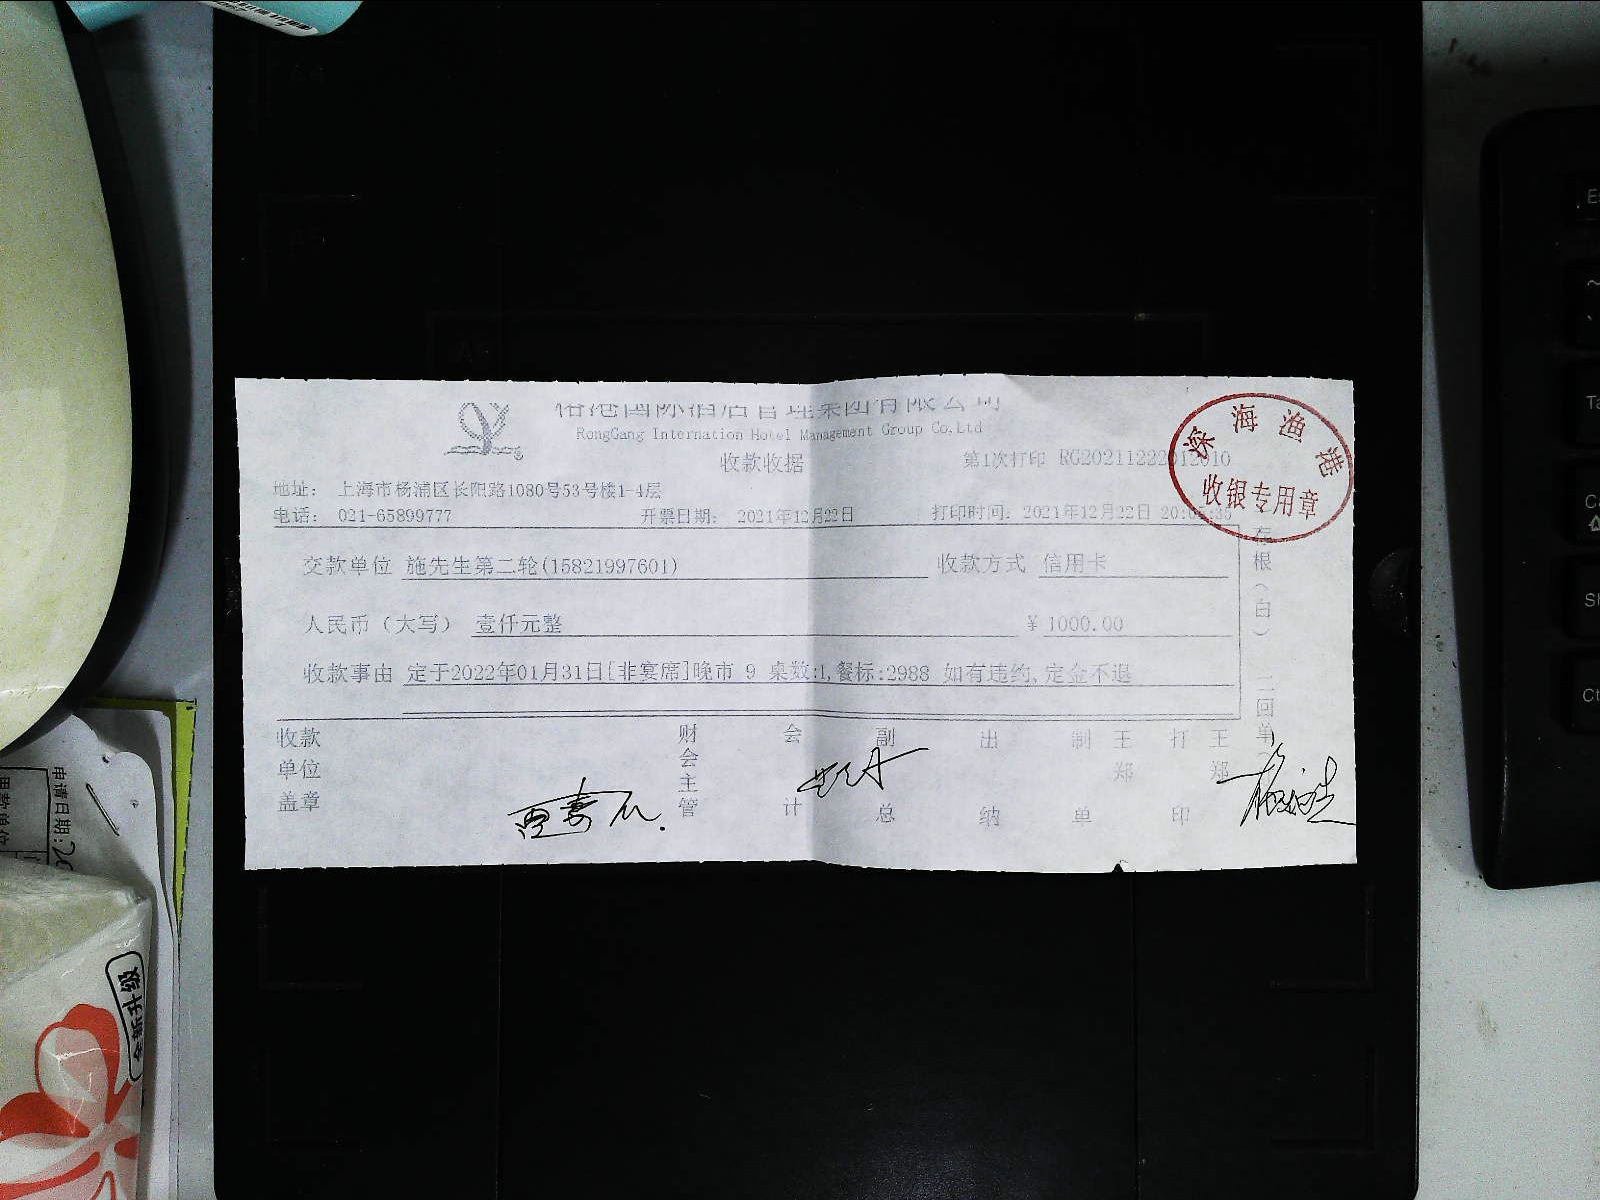 国际酒店管理集团有限公司
RongGang Internation Hotel Management Group Co.Ltd
收款收据
第1次打印 RG20211222012010
深海渔港
收银专用章
地址： 上海市杨浦区长阳路1080号53号楼1-4层
电话： 021-65899777 开票日期： 2021年12月22日 打印时间： 2021年12月22日
交款单位 施先生第二轮(15821997601) 收款方式 信用卡
人民币（大写） 壹仟元整 ￥1000.00
收款事由 定于2022年01月31日[非宴席]晚市 9 桌数:1,餐标:2988 如有违约,定金不退
存根（白） 二回单
收款单位盖章 财会主管 会计 副总 出纳 制单 王郑 打印 王郑
申请日期:
全新升级